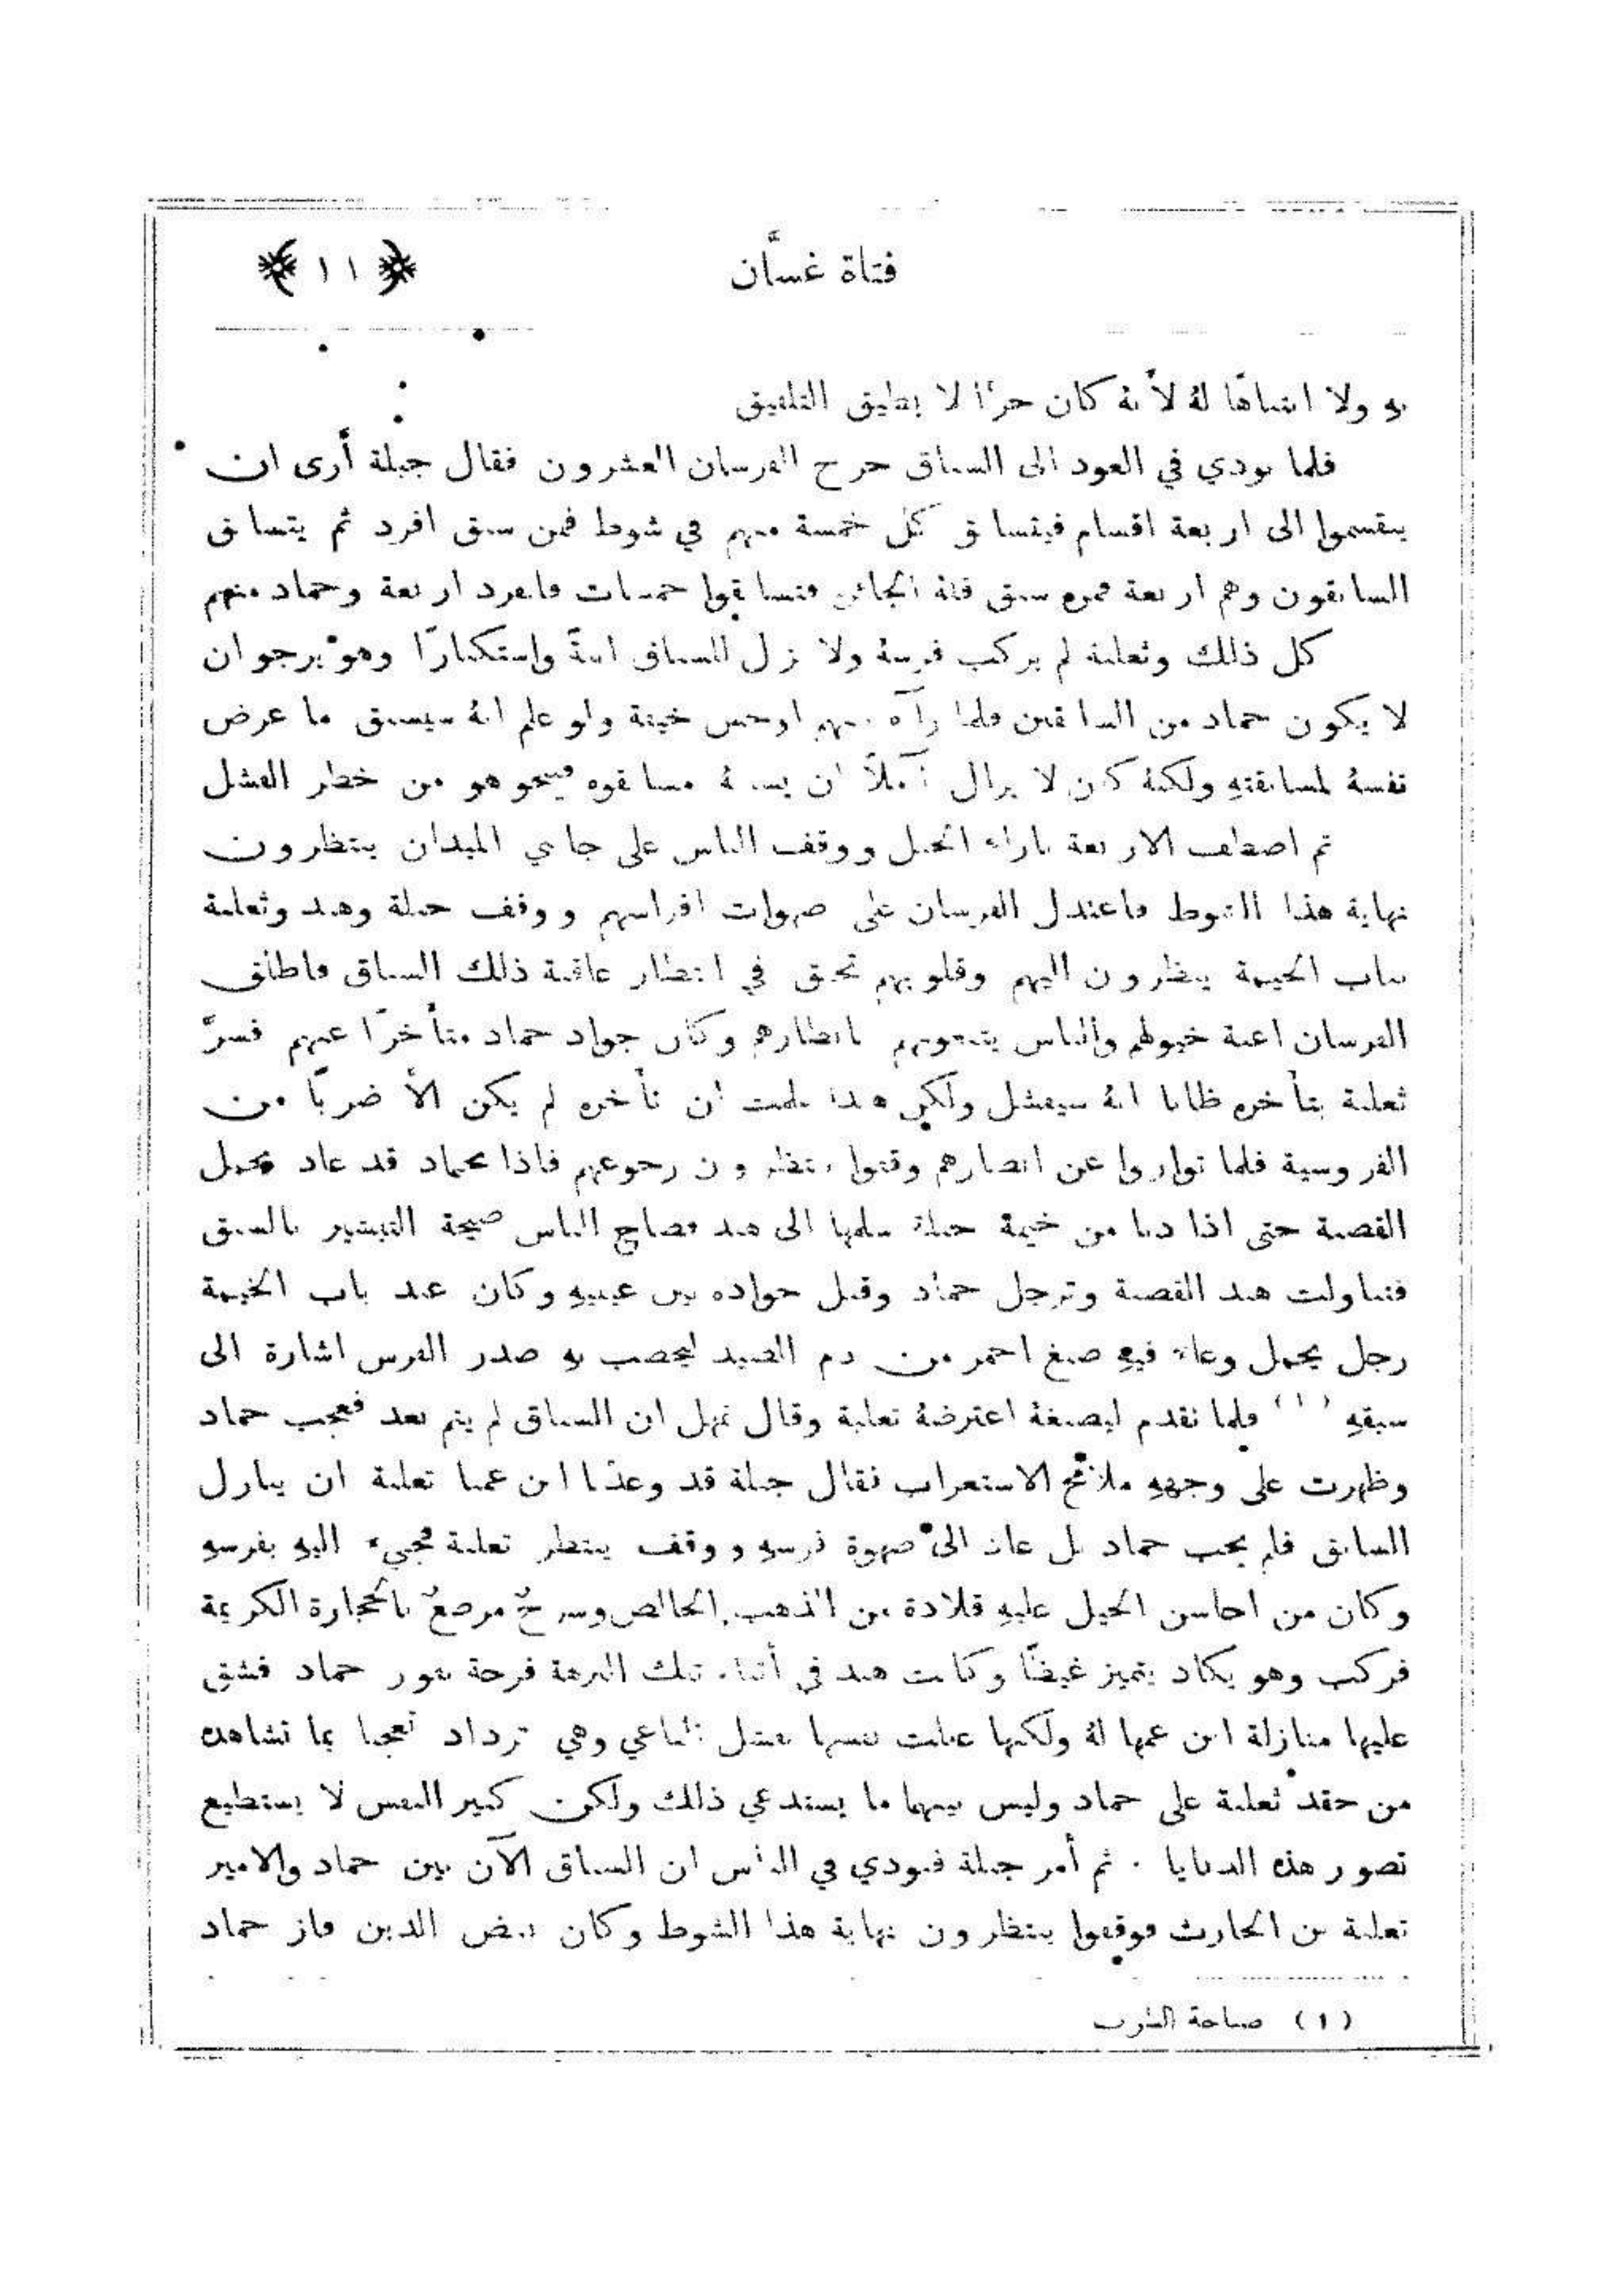 فتاة غسَّان
﴿ ١١ ﴾
بهِ ولا انتباهًا لهُ لأنهُ كان حرًّا لا يطيق التلفيق
فلما نودي في العود الى السباق خرج الفرسان العشرون فقال جبلة أرى ان
ينقسموا الى اربعة اقسام فيتسابق كل خمسة منهم في شوط فمن سبق افرد ثم يتسابق
السابقون وهم اربعة فمن سبق فلهُ الجائزة فتسابقوا خمسات فانفرد اربعة وحماد منهم
كل ذلك وثعلبة لم يركب فرسهُ ولا نزل للسباق انفةً واستكبارًا وهو يرجو ان
لا يكون حماد من السابقين فلما رآه منهم اوجس خيفة ولو علم انهُ سيسبق ما عرض
نفسهُ لمسابقتهِ ولكنهُ كان لا يزال آملاً ان يسبقهُ مسابقوه فينجو هو من خطر الفشل
ثم اصطف الاربعة بازاء الحبل ووقف الناس على جانبي الميدان ينتظرون
نهاية هذا الشوط فاعتدل الفرسان على صهوات افراسهم ووقف جبلة وهند وثعلبة
بباب الخيمة ينظرون اليهم وقلوبهم تخفق في انتظار عاقبة ذلك السباق فاطلق
الفرسان اعنة خيولهم والناس يتبعونهم بانظارهم وكان جواد حماد متأخرًا عنهم فسرَّ
ثعلبة بتأخره ظانا انهُ سيفشل ولكن هندا علمت ان تأخره لم يكن الاَّ ضربًا من
الفروسية فلما تواروا عن ابصارهم وقفوا ينتظرون رجوعهم فاذا بحماد قد عاد يحمل
القصبة حتى اذا دنا من خيمة جبلة سلمها الى هند فصاح الناس صيحة التبشير بالسبق
فتناولت هند القصبة وترجل حماد وقبل جواده بين عينيهِ وكان عند باب الخيمة
رجل يحمل وعاءً فيهِ صبغ احمر من دم الصيد ليخضب بهِ صدر الفرس اشارة الى
سبقهِ (١) فلما تقدم ليصبغهُ اعترضهُ ثعلبة وقال تمهل ان السباق لم يتم بعد فعجب حماد
وظهرت على وجههِ ملامح الاستغراب فقال جبلة قد وعدنا ابن عمنا ثعلبة ان ينازل
السابق فلم يجب حماد بل عاد الى صهوة فرسهِ ووقف ينتظر ثعلبة فجيء اليهِ بفرسهِ
وكان من احاسن الخيل عليهِ قلادة من الذهب الخالص وسرجٌ مرصعٌ بالحجارة الكريمة
فركب وهو يكاد يتميز غيضًا وكانت هند في أثناء تلك البرهة فرحة بفوز حماد فشق
عليها منازلة ابن عمها لهُ ولكنها عللت نفسها بفشل الباغي وهي تزداد تعجبا بما تشاهده
من حقد ثعلبة على حماد وليس بينهما ما يستدعي ذلك ولكن كبير النفس لا يستطيع
تصور هذه الدنايا . ثم أمر جبلة فنودي في الناس ان السباق الآن بين حماد والامير
ثعلبة بن الحارث فوقفوا ينتظرون نهاية هذا الشوط وكان بعض الذين فاز حماد
(١) صناجة الطرب